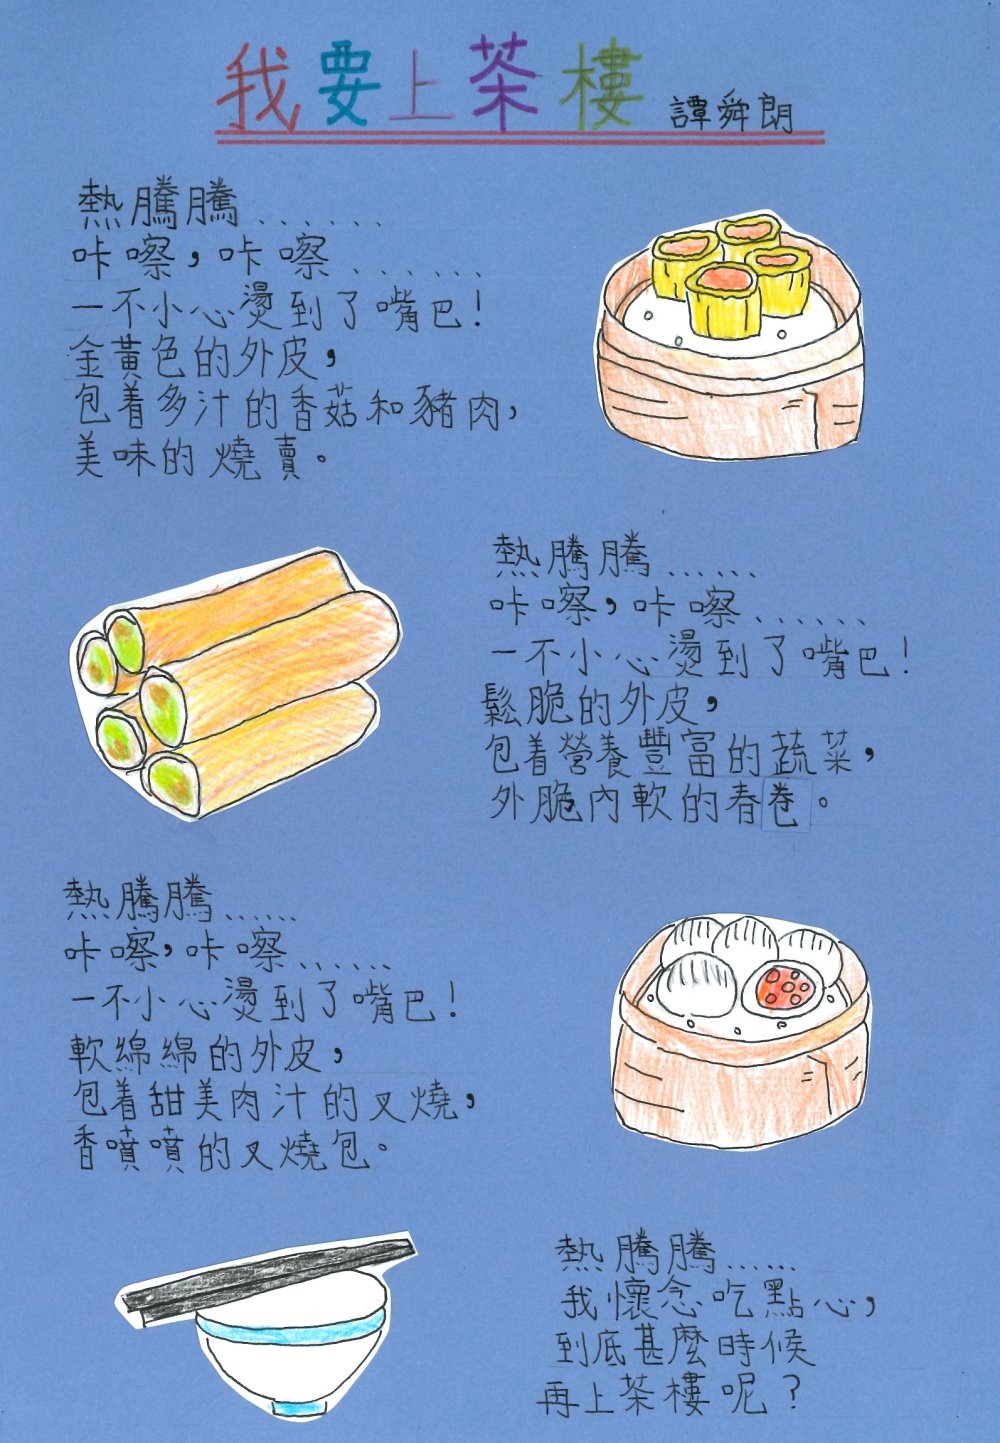 我要上茶樓 譚舜朗
熱騰騰......
咔嚓，咔嚓......
一不小心燙到了嘴巴！
金黃色的外皮，
包着多汁的香菇和豬肉，
美味的燒賣。
熱騰騰......
咔嚓，咔嚓......
一不小心燙到了嘴巴！
鬆脆的外皮，
包着營養豐富的蔬菜，
外脆內軟的春卷。
熱騰騰......
咔嚓，咔嚓......
一不小心燙到了嘴巴！
軟綿綿的外皮，
包着甜美肉汁的叉燒，
香噴噴的叉燒包。
熱騰騰......
我懷念吃點心，
到底甚麼時候
再上茶樓呢？